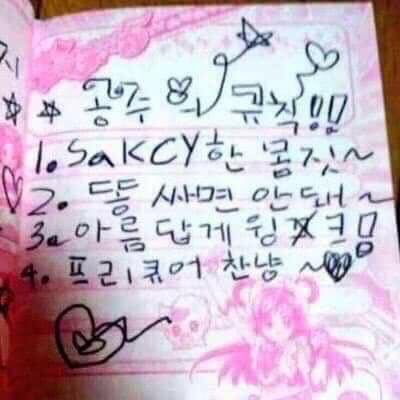 공주의 규칙밈
1. SaKCY한 몸짓~
2. 똥 싸면 안돼~
3. 아름답게 윙☆크밈
4. 프리큐어 찬냥~